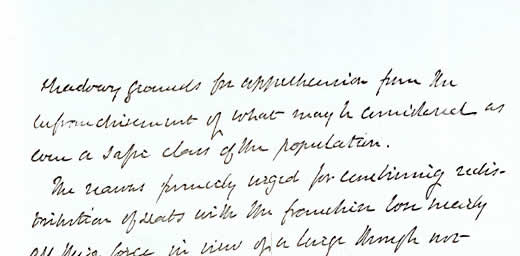 shadowy grounds for apprehension from the
enfranchisement of what may be considered as
even a safe class of the population.
The reasons formerly urged for combining redis-
tribution of seats with the franchise lose nearly
all their force in view of a large though not